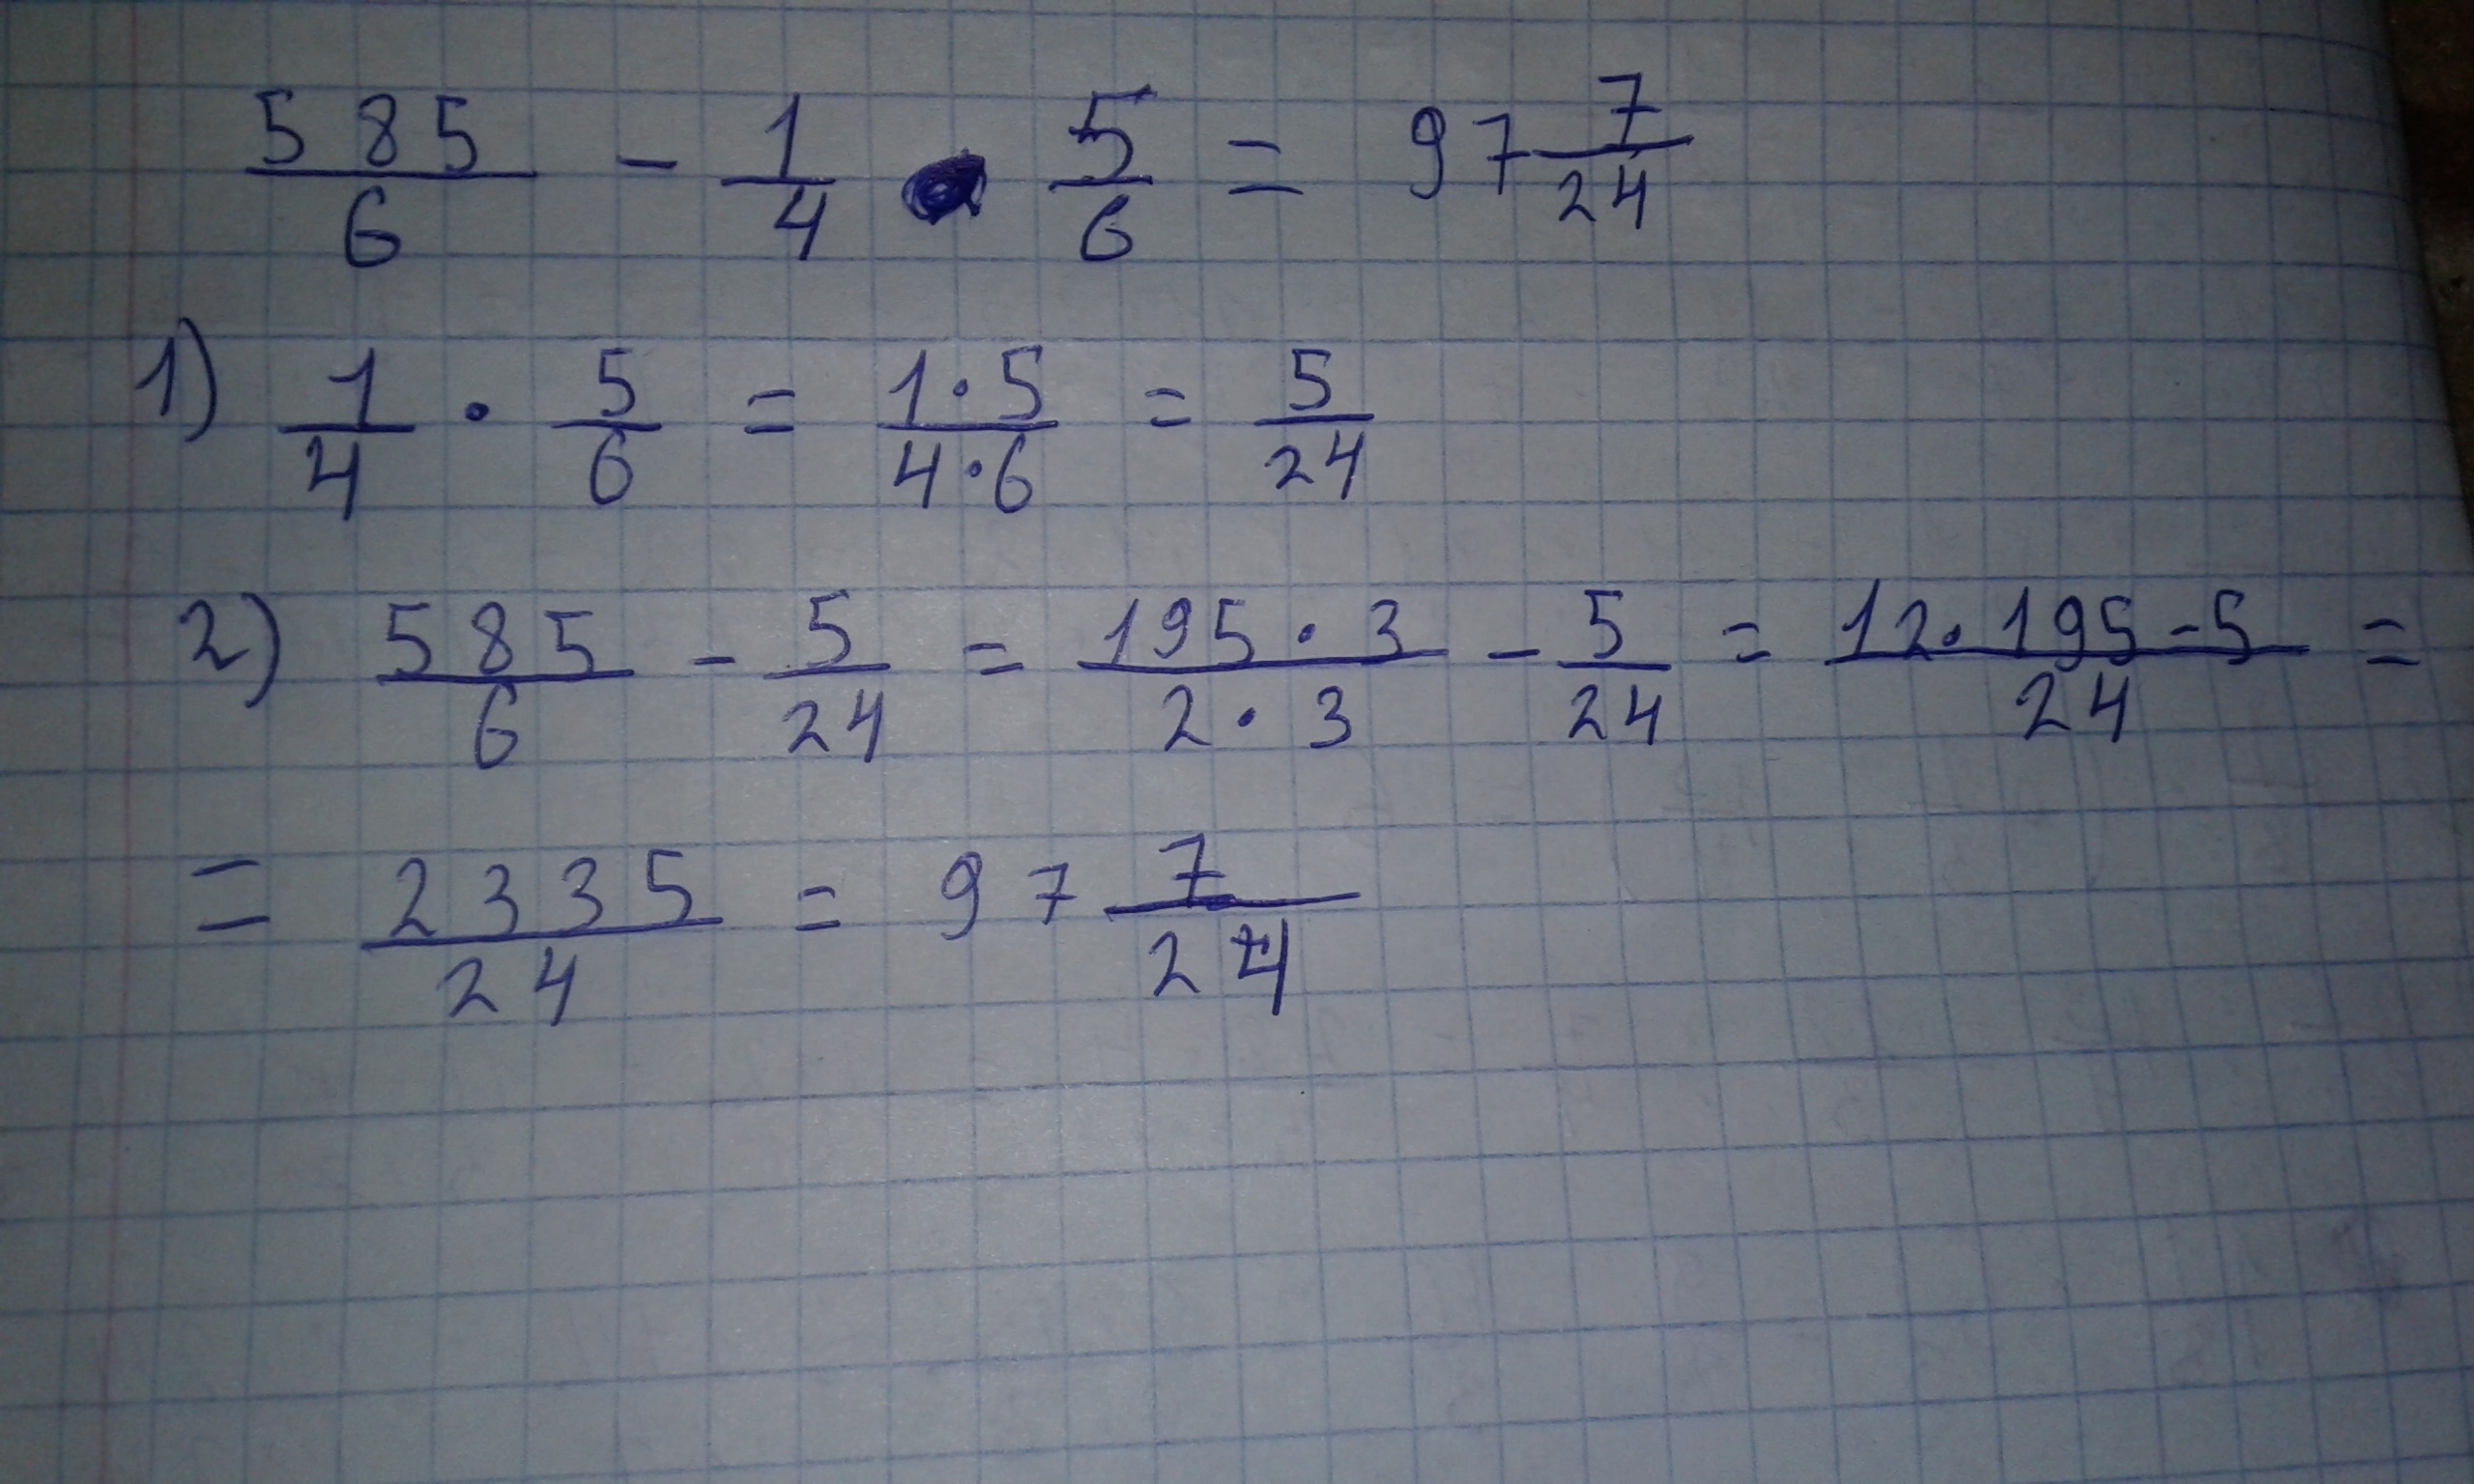 585/6 - 1/4 · 5/6 = 97 7/24
1) 1/4 · 5/6 = 1·5/4·6 = 5/24
2) 585/6 - 5/24 = 195·3/2·3 - 5/24 = 12·195-5/24 =
= 2335/24 = 97 7/24